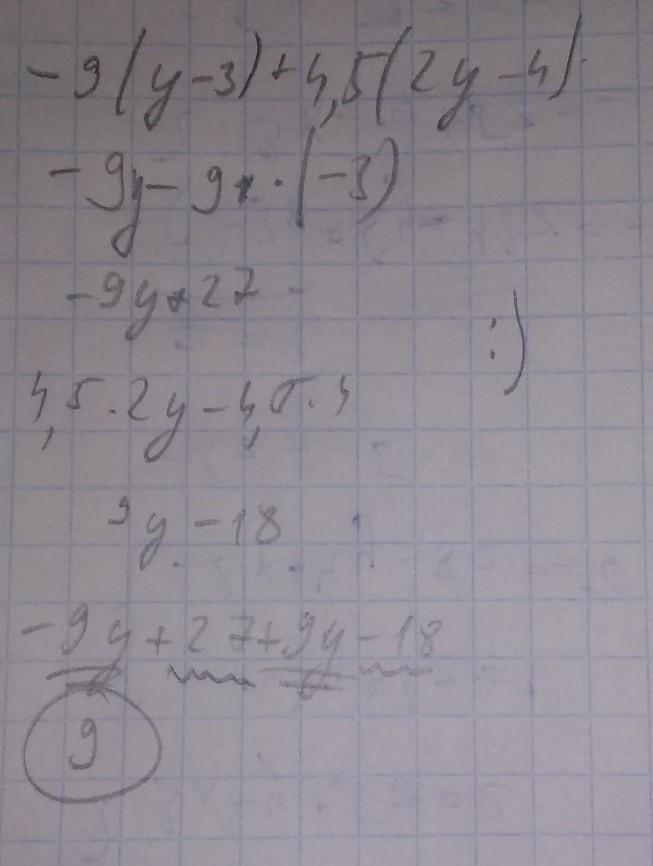 -9(y-3)+4,5(2y-4)
-9y-9·(-3)
-9y+27
:)
4,5·2y-4,5·4
9y-18
-9y+27+9y-18
9